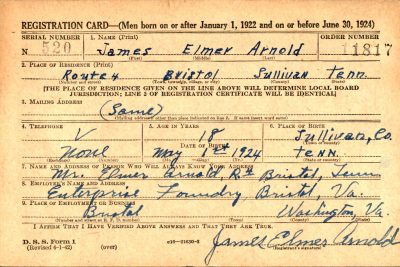 REGISTRATION CARD—(Men born on or after January 1, 1922 and on or before June 30, 1924)
SERIAL NUMBER 1. NAME (Print) ORDER NUMBER
N 520 James Elmer Arnold 11817
(First) (Middle) (Last)
2. PLACE OF RESIDENCE (Print)
Route 4 Bristol Sullivan Tenn.
(Number and street) (Town, township, village, or city) (County) (State)
[THE PLACE OF RESIDENCE GIVEN ON THE LINE ABOVE WILL DETERMINE LOCAL BOARD
JURISDICTION; LINE 2 OF REGISTRATION CERTIFICATE WILL BE IDENTICAL]
3. MAILING ADDRESS
(Same)
[Mailing address if other than place indicated on line 2. If same insert word same]
4. TELEPHONE 5. AGE IN YEARS 6. PLACE OF BIRTH
18 Sullivan, Co.
DATE OF BIRTH (Town or county)
None May 1st 1924 Tenn
7. NAME AND ADDRESS OF PERSON WHO WILL ALWAYS KNOW YOUR ADDRESS
Mr. Elmer Arnold, R4 Bristol, Tenn
8. EMPLOYER'S NAME AND ADDRESS
Enterprise Foundry Bristol, Va.
9. PLACE OF EMPLOYMENT OR BUSINESS
Bristol Washington, Va.
(Number and street or R. F. D. number) (Town) (County) (State)
I AFFIRM THAT I HAVE VERIFIED ABOVE ANSWERS AND THAT THEY ARE TRUE.
D. S. S. Form 1
(Revised 6-1-42) (over) James Elmer Arnold
(Registrant's signature)